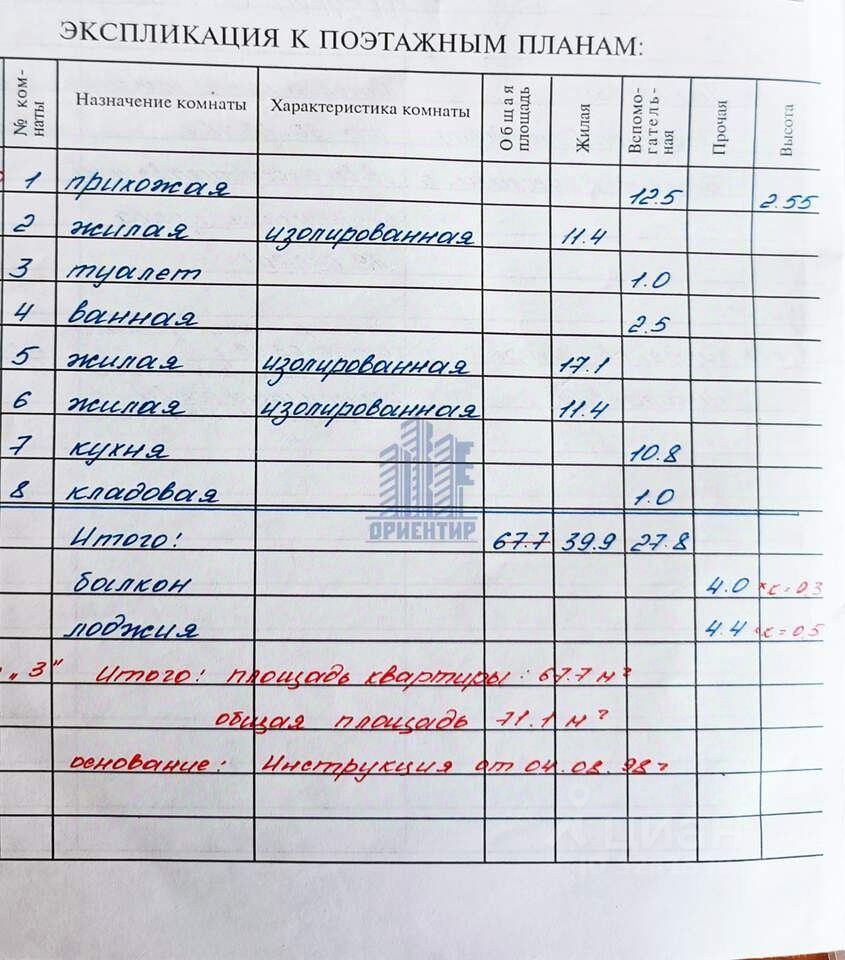 ЭКСПЛИКАЦИЯ К ПОЭТАЖНЫМ ПЛАНАМ:
№ ком-наты Назначение комнаты Характеристика комнаты Общая площадь Жилая Вспомо-гатель-ная Прочая Высота
1 прихожая 12.5 2.55
2 жилая изолированная 11.4
3 туалет 1.0
4 ванная 2.5
5 жилая изолированная 17.1
6 жилая изолированная 11.4
7 кухня 10.8
8 кладовая 1.0
ОРИЕНТИР
Итого: 67.7 39.9 27.8
балкон 4.0 *к=0,3
лоджия 4.4 *к=0,5
„3" Итого: площадь квартиры: 67.7 м²
общая площадь 71.1 м²
основание: Инструкция от 04.08.98г
циан